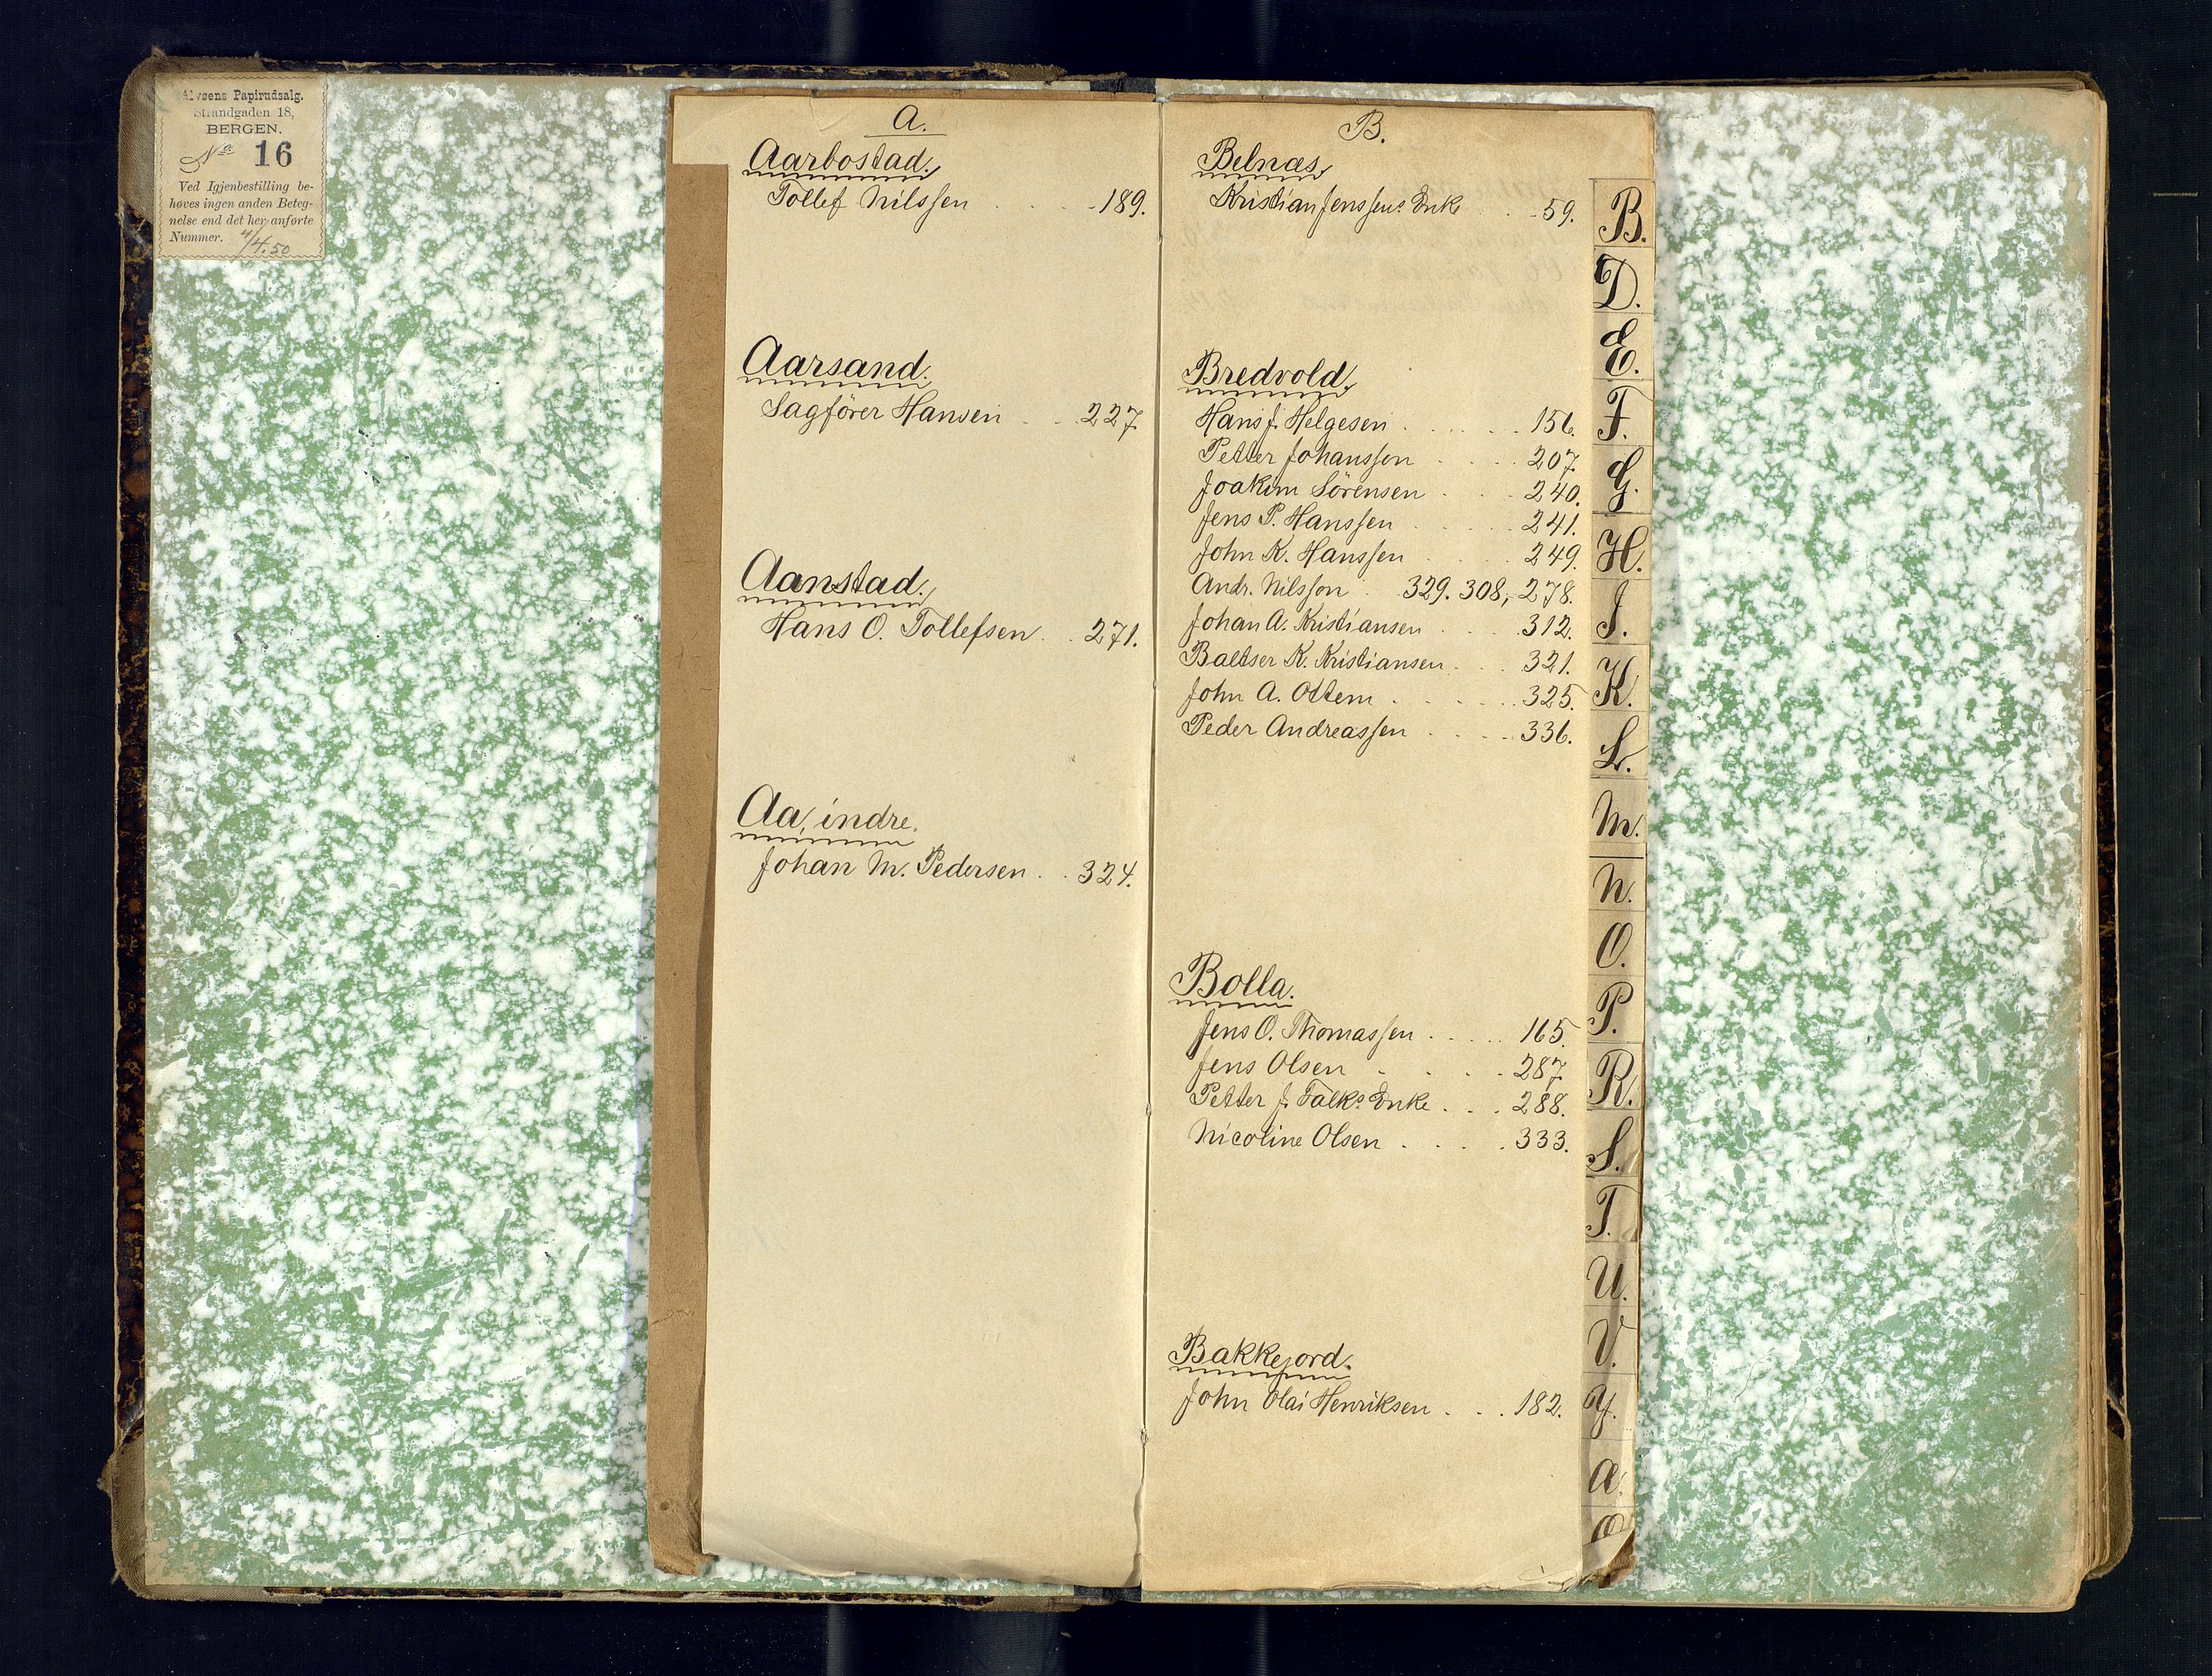 Alvøens Papirudsalg.
Strandgaden 18,
BERGEN.
No 16
Ved Igjenbestilling be-
høves ingen anden Beteg-
nelse end det her anførte
Nummer.
4/4.50
A.
Aarbostad.
Tollef Nilssen . . . . 189.
Aarsand.
Sagförer Hansen . . . 227
Aanstad.
Hans O. Tollefsen . . 271.
Aa, indre.
Johan M. Pedersen . . 324.
B.
Belnæs
Kristian Jenssens Enke . . 59.
Bredvold.
Hans J. Helgesen . . . . . 156.
Petter Johanssen . . . . 207.
Joakim Sörensen . . . 240.
Jens P. Hanssen . . . . 241.
John K. Hanssen . . . 249.
Andr. Nilsson . 329. 308, 278.
Johan A. Kristiansen . . . 312.
Baltser K. Kristiansen . . . 321.
John A. Ottem . . . . . 325.
Peder Andreassen . . . . 336.
Bolla.
Jens O. Thomassen . . . . . 165.
Jens Olsen . . . . 287
Petter J. Falks Enke . . . 288.
Nicoline Olsen . . . . 333.
Bakkejord.
John Olai Henriksen . . . 182.
B.
D.
E.
F.
G.
H.
J.
K.
L.
M.
N.
O.
P.
R.
S.
T.
U.
V.
Y.